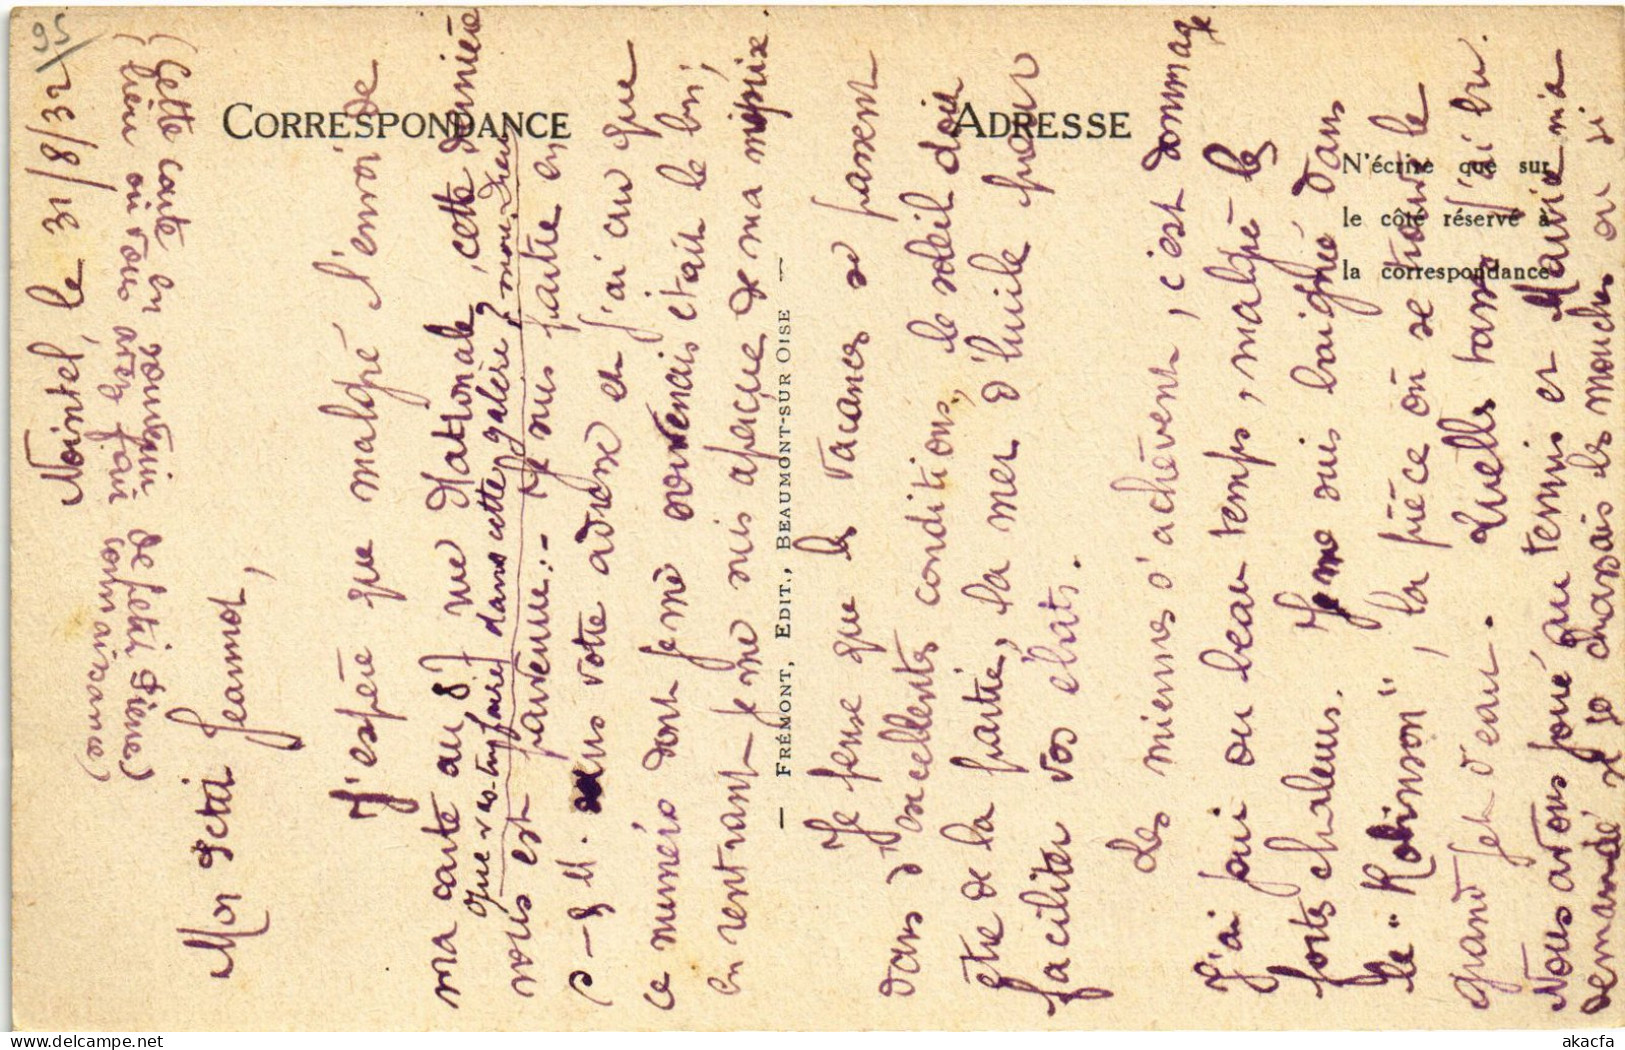 95
Nointel, le 31/8/32
(Cette carte en souvenir de petit Pierre)
(lieu où vous avez fait connaissance)
Mon petit Jeannot,
J'espère que malgré l'envoi de
ma carte au 8 rue Nationale, cette dernière
que vas-tu faire dans cette galère? mon Dieu
vous est parvenue.- Je suis partie en
votre adresse et j'ai cru que
ce numéro dont je me souvenais était le bon;
en rentrant je me suis aperçue de ma méprise
Je pense que les vacances se passent
dans d'excellentes conditions, le soleil doit
être de la partie, la mer d'huile pour
faciliter vos ébats.
Les miennes s'achèvent, c'est dommage
J'ai joui du beau temps, malgré les
fortes chaleurs. Je me suis baigné dans
le "Robinson", la pièce où se trouve le
grand jet d'eau. Quelle tasse j'ai bu.
Nous avons joué au tennis et Maria m'a
demandé si je chassais les mouches ou si
CORRESPONDANCE
ADRESSE
N'écrire que sur
le côté réservé à
la correspondance
— FRÉMONT, EDIT., BEAUMONT-SUR OISE —
akacfa